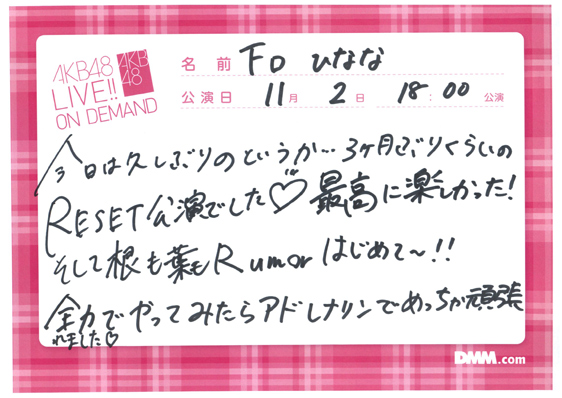 AKB48
LIVE!!
ON DEMAND
AKB
48
名前 FO ひなな
公演日 11月 2日 18:00 公演
今日は久しぶりのというか…3ヶ月ぶりくらいの
RESET公演でした♡最高に楽しかった!
そして根も葉もRumorはじめて〜!!
全力でやってみたらアドレナリンでめっちゃ頑張
れました♡
DMM.com